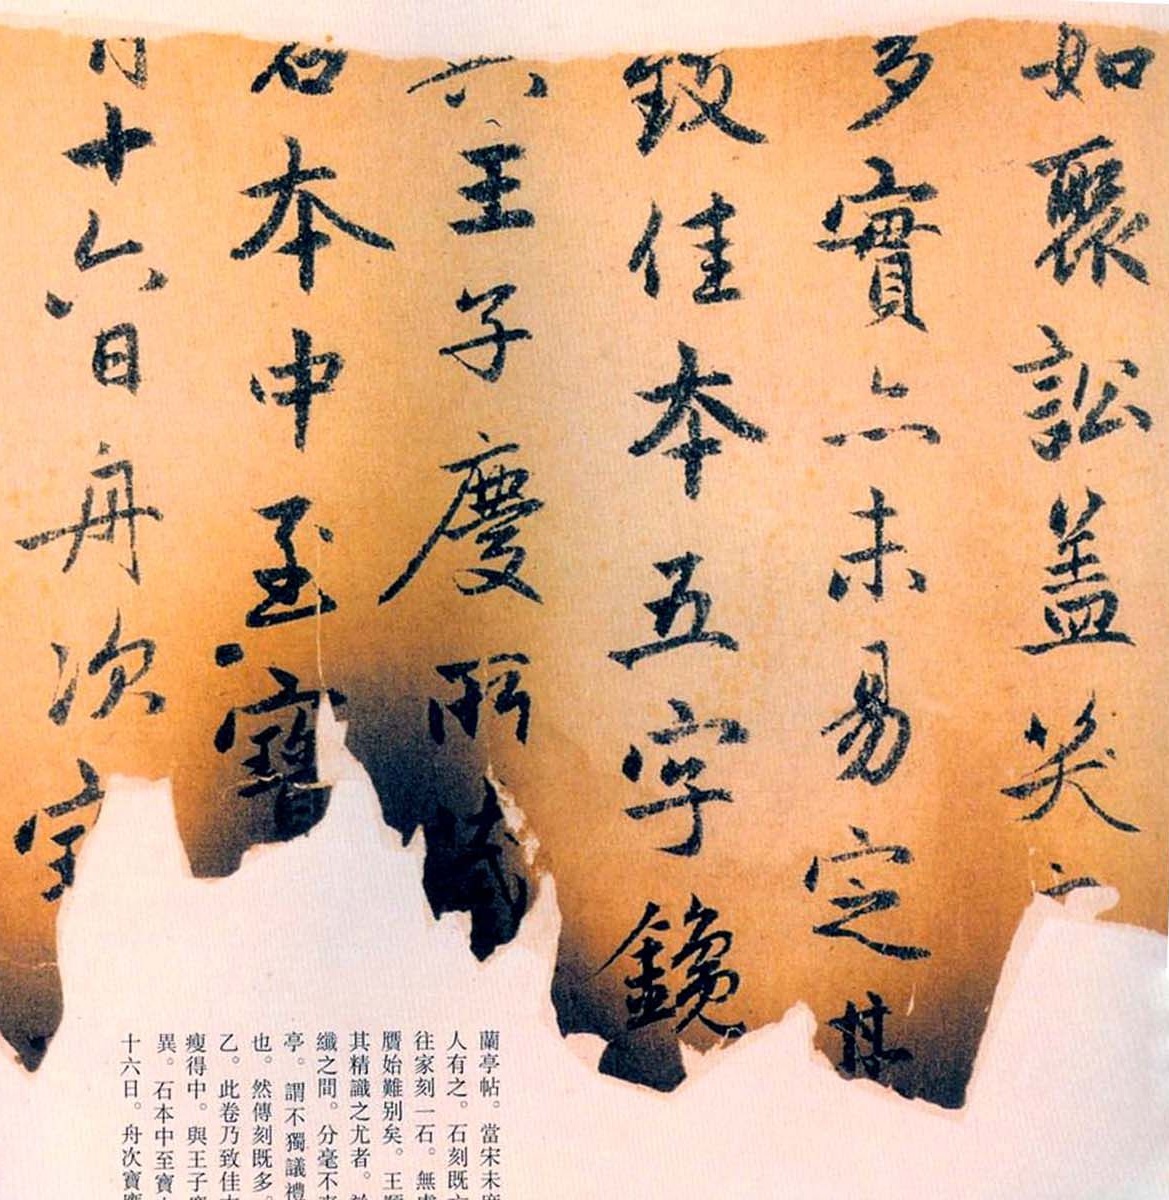 如聚訟盖笑
多實亦未易定其
致佳本五字鑱
與王子慶所藏
石本中至寳
月十六日舟次寳
蘭亭帖。當宋未度
人有之。石刻既亡
往家刻一石。無慮
贋始難別矣。王順
其精識之尤者。於
纖之間。分毫不爽
亭。謂不獨議禮
也。然傳刻既多。
乙。此卷乃致佳本
瘦得中。與王子慶
異。石本中至寶
十六日。舟次寶應